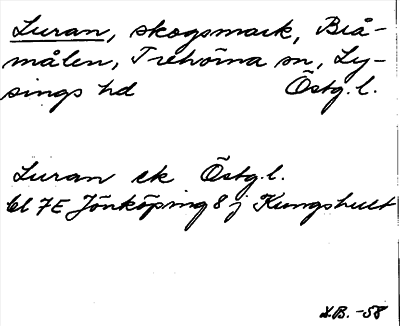 Luran, skogsmark, Blå-
målen, Trehörna sn, Ly-
sings hd Östg.l.
Luran ek Östg.l.
bl 7E Jönköping 8 j Kungshult
L.B. -58